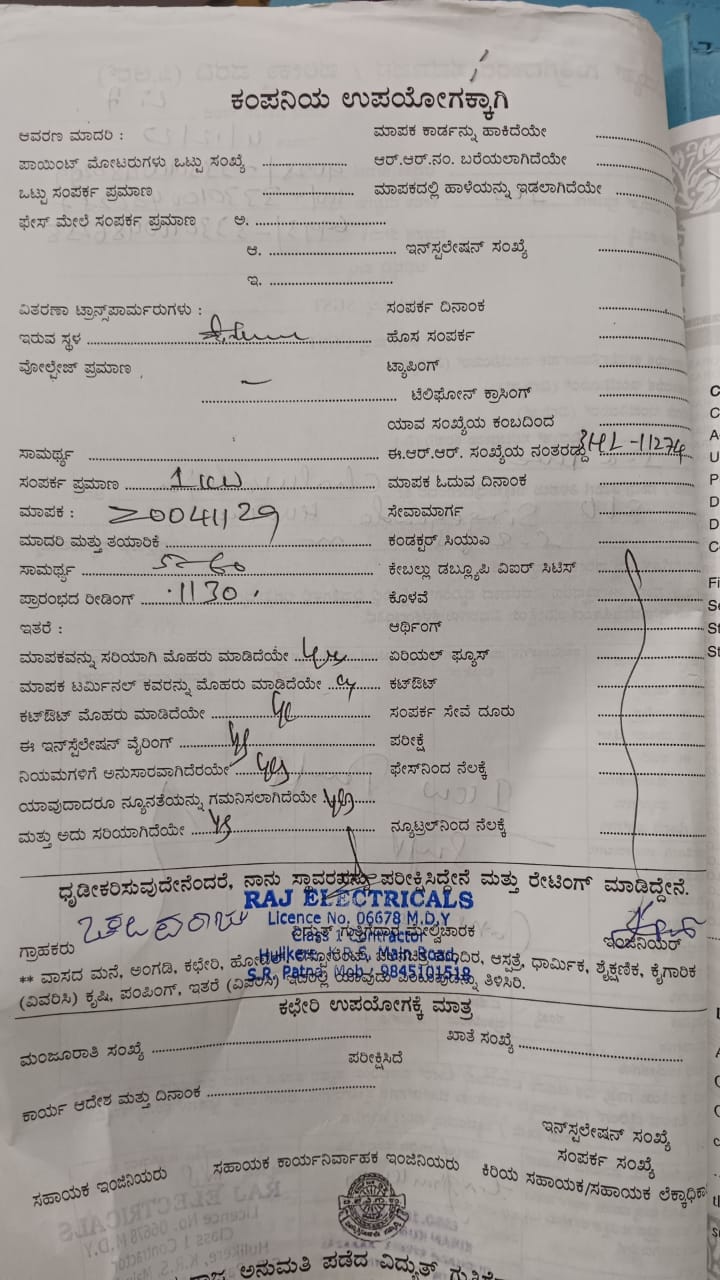 ಕಂಪನಿಯ ಉಪಯೋಗಕ್ಕಾಗಿ
ಆವರಣ ಮಾದರಿ : ಮಾಪಕ ಕಾರ್ಡನ್ನು ಹಾಕಿದೆಯೇ
ಪಾಯಿಂಟ್ ಮೋಟರುಗಳು ಒಟ್ಟು ಸಂಖ್ಯೆ ಆರ್.ಆರ್.ನಂ. ಬರೆಯಲಾಗಿದೆಯೇ
ಒಟ್ಟು ಸಂಪರ್ಕ ಪ್ರಮಾಣ ಮಾಪಕದಲ್ಲಿ ಹಾಳೆಯನ್ನು ಇಡಲಾಗಿದೆಯೇ
ಫೇಸ್ ಮೇಲೆ ಸಂಪರ್ಕ ಪ್ರಮಾಣ ಅ.
ಆ. ಇನ್‌ಸ್ಟಲೇಷನ್ ಸಂಖ್ಯೆ
ಇ.
ವಿತರಣಾ ಟ್ರಾನ್ಸ್‌ಪಾರ್ಮರುಗಳು : ಸಂಪರ್ಕ ದಿನಾಂಕ
ಇರುವ ಸ್ಥಳ ಹೊಸ ಸಂಪರ್ಕ
ವೋಲ್ಟೇಜ್ ಪ್ರಮಾಣ — ಟ್ಯಾಪಿಂಗ್
ಟೆಲಿಫೋನ್ ಕ್ರಾಸಿಂಗ್
ಯಾವ ಸಂಖ್ಯೆಯ ಕಂಬದಿಂದ
ಸಾಮರ್ಥ್ಯ ಈ.ಆರ್.ಆರ್. ಸಂಖ್ಯೆಯ ನಂತರದ್ದು BHL-11274
ಸಂಪರ್ಕ ಪ್ರಮಾಣ 1 KW ಮಾಪಕ ಓದುವ ದಿನಾಂಕ
ಮಾಪಕ : 20041129 ಸೇವಾಮಾರ್ಗ
ಮಾದರಿ ಮತ್ತು ತಯಾರಿಕೆ ಕಂಡಕ್ಟರ್ ಸಿಯುಎ
ಸಾಮರ್ಥ್ಯ 5-60 ಕೇಬಲ್ಲು ಡಬ್ಲ್ಯೂಪಿ ವಿಐರ್ ಸಿಟಿಸ್
ಪ್ರಾರಂಭದ ರೀಡಿಂಗ್ 1130 ಕೊಳವೆ
ಇತರೆ : ಆರ್ಥಿಂಗ್
ಮಾಪಕವನ್ನು ಸರಿಯಾಗಿ ಮೊಹರು ಮಾಡಿದೆಯೇ yes ಏರಿಯಲ್ ಫ್ಯೂಸ್
ಮಾಪಕ ಟರ್ಮಿನಲ್ ಕವರನ್ನು ಮೊಹರು ಮಾಡಿದೆಯೇ ಕಟ್‌ಔಟ್
ಕಟ್‌ಔಟ್ ಮೊಹರು ಮಾಡಿದೆಯೇ yes ಸಂಪರ್ಕ ಸೇವೆ ದೂರು
ಈ ಇನ್‌ಸ್ಟೆಲೇಷನ್ ವೈರಿಂಗ್ yes ಪರೀಕ್ಷೆ
ನಿಯಮಗಳಿಗೆ ಅನುಸಾರವಾಗಿದೆರಯೇ yes ಫೇಸ್‌ನಿಂದ ನೆಲಕ್ಕೆ
ಯಾವುದಾದರೂ ನ್ಯೂನತೆಯನ್ನು ಗಮನಿಸಲಾಗಿದೆಯೇ yes
ಮತ್ತು ಅದು ಸರಿಯಾಗಿದೆಯೇ yes ನ್ಯೂಟ್ರಲ್‌ನಿಂದ ನೆಲಕ್ಕೆ
ಧೃಡೀಕರಿಸುವುದೇನೆಂದರೆ, ನಾನು ಸ್ಥಾವರವನ್ನು ಪರೀಕ್ಷಿಸಿದ್ದೇನೆ ಮತ್ತು ರೇಟಿಂಗ್ ಮಾಡಿದ್ದೇನೆ.
RAJ ELECTRICALS
Licence No. 06678 M.D,Y
ವಿದ್ಯುತ್ ಗುತ್ತಿಗೆದಾರ ಮೇಲ್ವಿಚಾರಕ
Class 1 Contractor
ಗ್ರಾಹಕರು ಇಂಜಿನಿಯರ್
Hulikere, K.R.S, Main Road,
S.R. Patna, Mob : 9845101518
** ವಾಸದ ಮನೆ, ಅಂಗಡಿ, ಕಛೇರಿ, ಆಸ್ಪತ್ರೆ, ಧಾರ್ಮಿಕ, ಶೈಕ್ಷಣಿಕ, ಕೈಗಾರಿಕ
(ವಿವರಿಸಿ) ಕೃಷಿ, ಪಂಪಿಂಗ್, ಇತರೆ (ವಿವರಿಸಿ) ಇದರಲ್ಲಿ ಯಾವುದು ತಿಳಿಸಿರಿ.
ಕಛೇರಿ ಉಪಯೋಗಕ್ಕೆ ಮಾತ್ರ
ಮಂಜೂರಾತಿ ಸಂಖ್ಯೆ ಖಾತೆ ಸಂಖ್ಯೆ
ಪರೀಕ್ಷಿಸಿದೆ
ಕಾರ್ಯ ಆದೇಶ ಮತ್ತು ದಿನಾಂಕ
ಇನ್‌ಸ್ಟಲೇಷನ್ ಸಂಖ್ಯೆ
ಸಂಪರ್ಕ ಸಂಖ್ಯೆ
ಸಹಾಯಕ ಇಂಜಿನಿಯರು ಸಹಾಯಕ ಕಾರ್ಯನಿರ್ವಾಹಕ ಇಂಜಿನಿಯರು ಕಿರಿಯ ಸಹಾಯಕ/ಸಹಾಯಕ ಲೆಕ್ಕಾಧಿಕಾ
ಅನುಮತಿ ಪಡೆದ ವಿದ್ಯುತ್